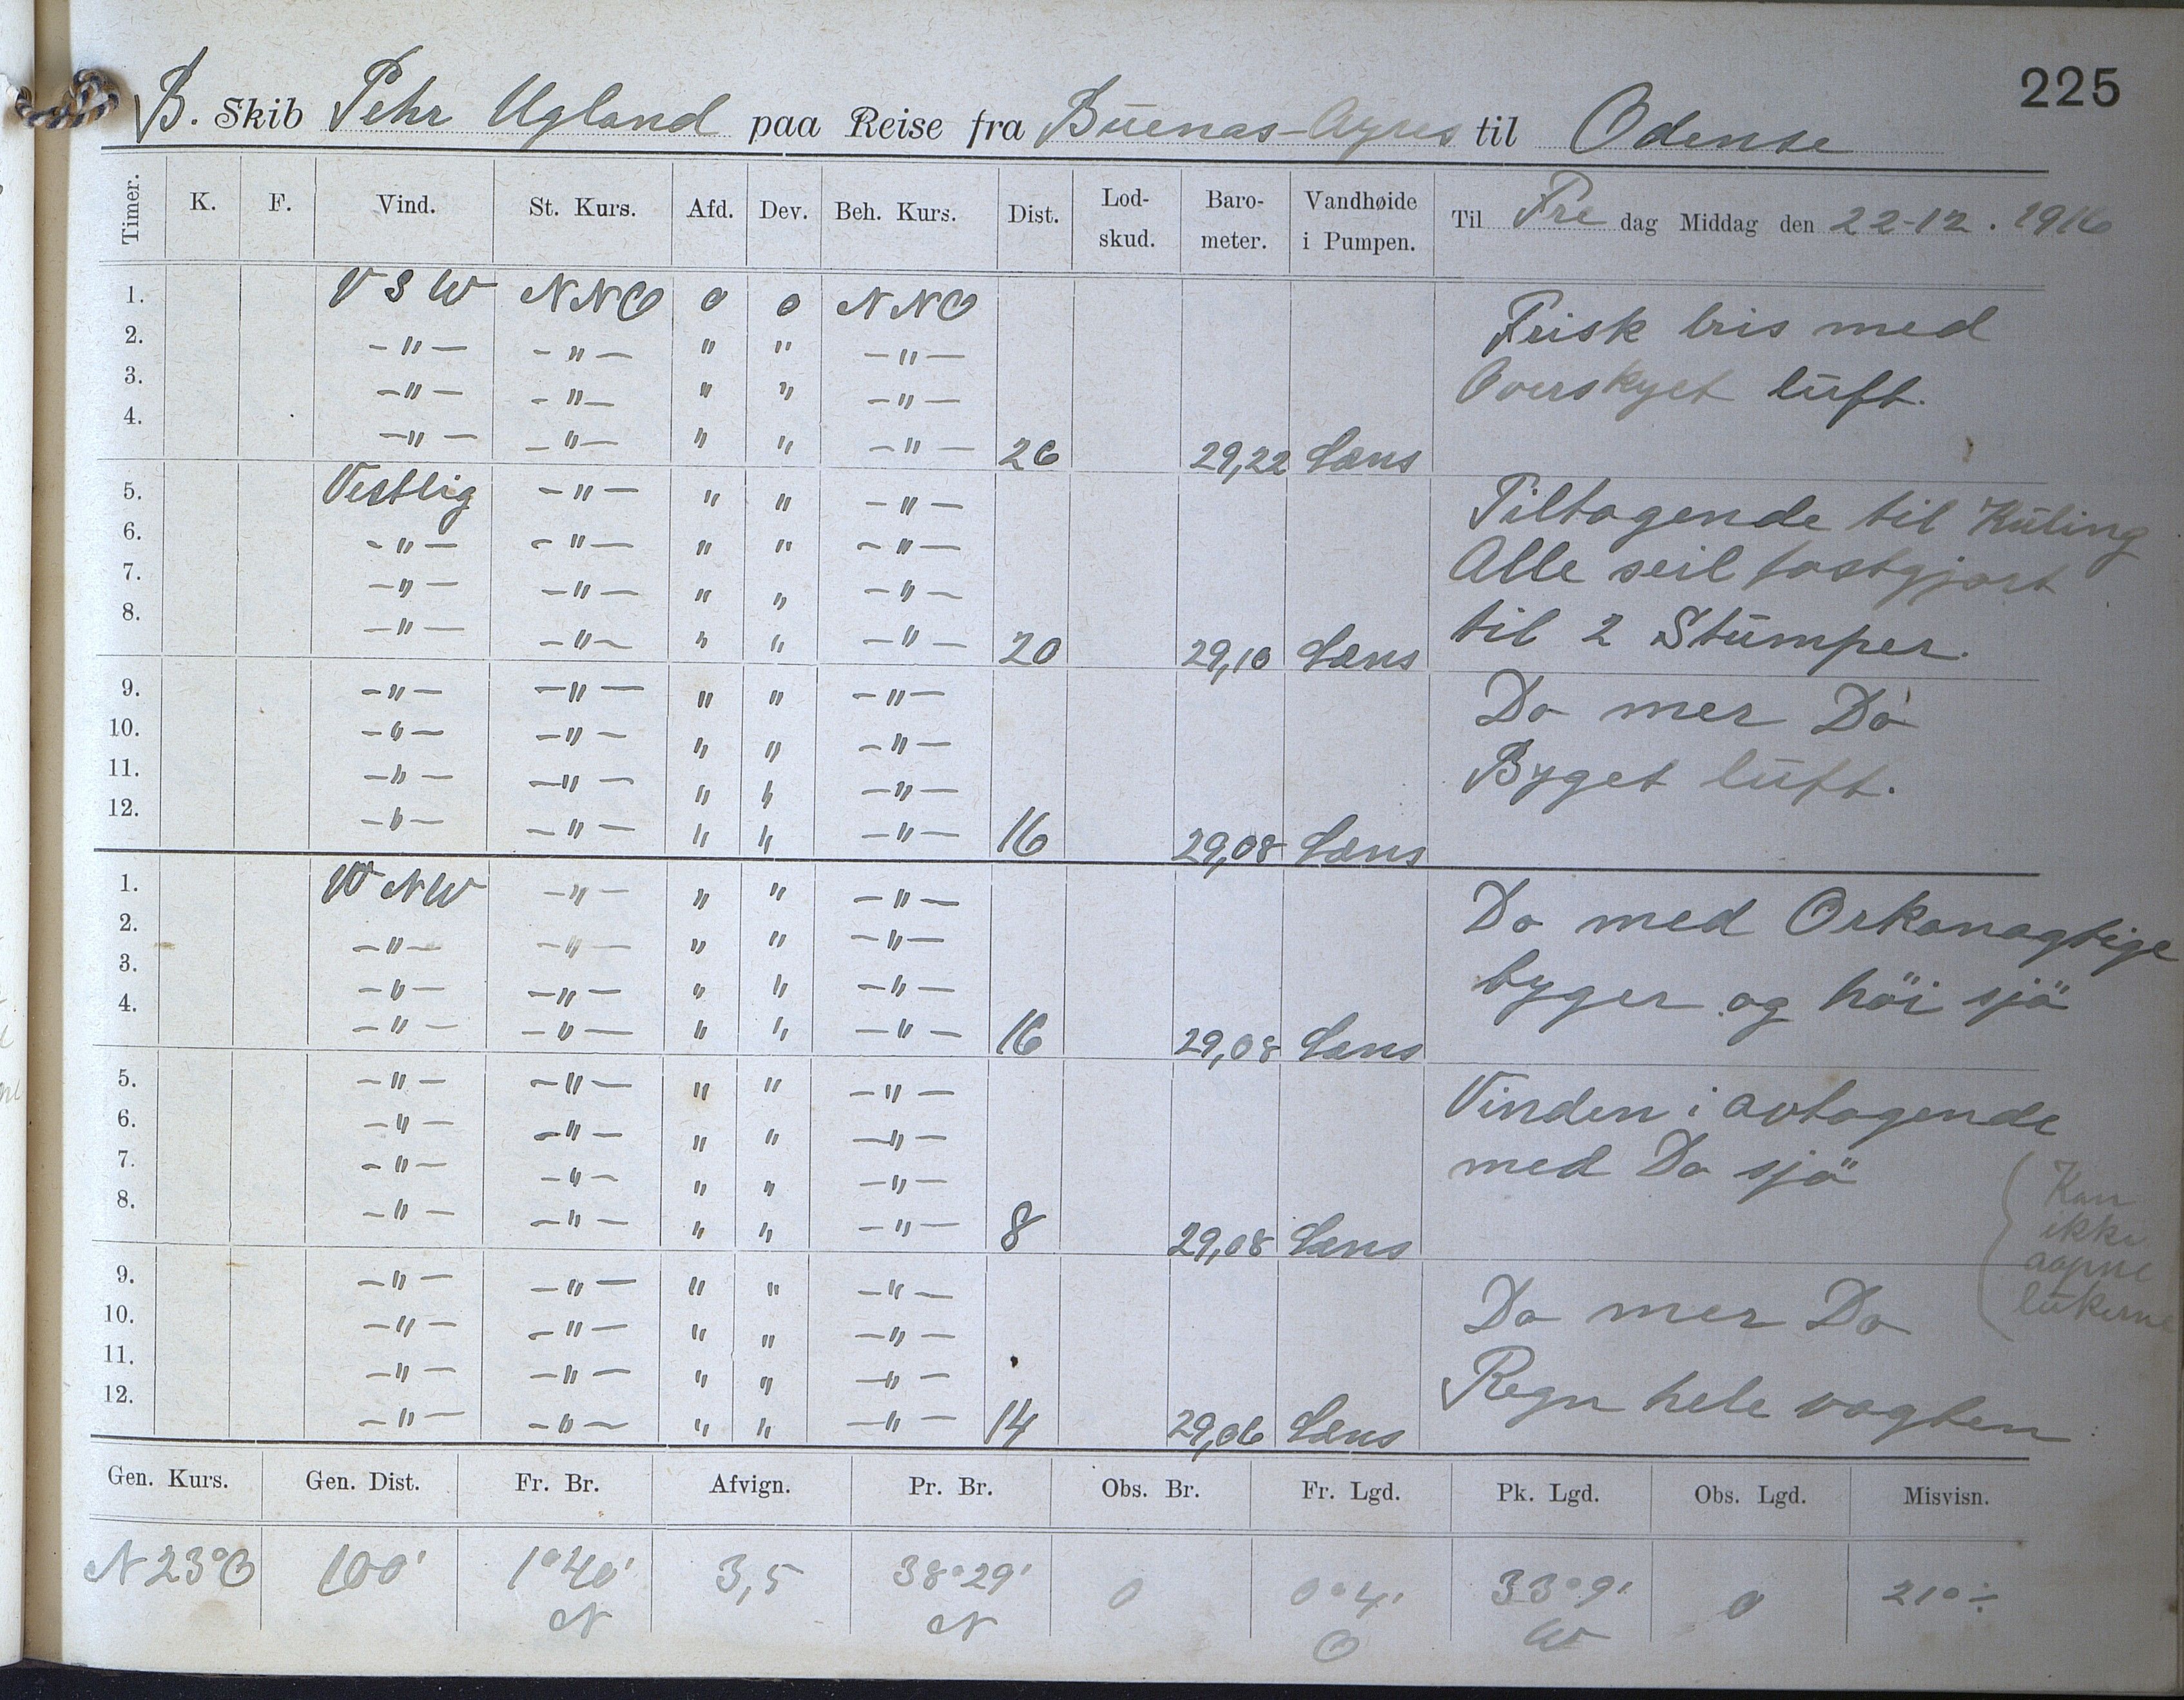 225
B. Skib Pehr Ugland paa Reise fra Buenas-Ayres til Odense
Timer. K. F. Vind. St. Kurs. Afd. Dev. Beh. Kurs. Dist. Lod-skud. Baro-meter. Vandhøide i Pumpen. Til Fre dag Middag den 22-12. 1916
1. V S W NNO 0 0 NNO Frisk bris med
2. -"- -"- " " -"-
3. -"- -"- " " -"- Overskyet luft.
4. -"- -"- " " -"- 26 29,22 Læns
5. Vestlig -"- " " -"- Tiltagende til Kuling
6. -"- -"- " " -"- Alle seil fastgjort
7. -"- -"- " " -"-
8. -"- -"- " " -"- 20 29,10 Læns til 2 Stumper.
9. -"- -"- " " -"- Do mer Do
10. -"- -"- " " -"-
11. -"- -"- " " -"- Byget luft.
12. -"- -"- " " -"- 16 29,08 Læns
1. W NW -"- " " -"- Do med Orkanagtige
2. -"- -"- " " -"-
3. -"- -"- " " -"- byger og höi sjö
4. -"- -"- " " -"- 16 29,08 Læns
5. -"- -"- " " -"- Vinden i avtagende
6. -"- -"- " " -"- med Do sjö
7. -"- -"- " " -"-
8. -"- -"- " " -"- 8 29,08 Læns
Kan
ikke
aapne
lukerne
9. -"- -"- " " -"- Do mer Do
10. -"- -"- " " -"-
11. -"- -"- " " -"- Regn hele vagten
12. -"- -"- " " -"- 14 29,06 Læns
Gen. Kurs. Gen. Dist. Fr. Br. Afvign. Pr. Br. Obs. Br. Fr. Lgd. Pk. Lgd. Obs. Lgd. Misvisn.
N 23°O 100' 1°40' 3,5 38°29' 0 0°4' 33°9' 0 21°÷
N N O W